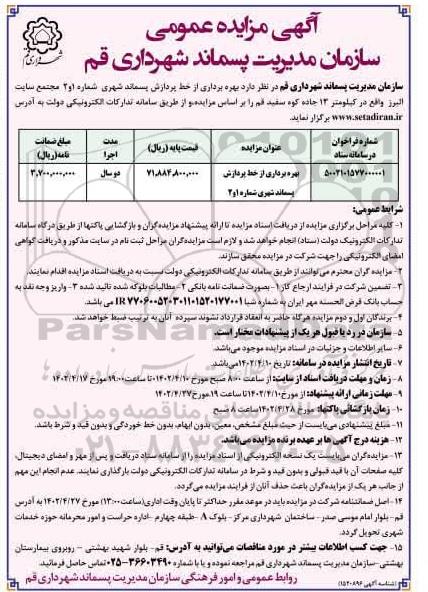 آگهی مزایده عمومی
سازمان مدیریت پسماند شهرداری قم
شهرداری قم
سازمان مدیریت پسماند شهرداری قم در نظر دارد بهره برداری از خط پردازش پسماند شهری شماره ۱و۲ مجتمع سایت
البرز واقع در کیلومتر ۱۳ جاده کوه سفید قم را بر اساس مزایده،و از طریق سامانه تدارکات الکترونیکی دولت به آدرس
www.setadiran.ir برگزار نماید.
شماره فراخوان در سامانه ستاد
عنوان مزایده
قیمت پایه (ریال)
مدت اجرا
مبلغ ضمانت نامه(ریال)
۵۰۰۲۱۰۱۵۷۷۰۰۰۰۰۱
بهره برداری از خط پردازش پسماند شهری شماره ۱و۲
۷۱,۸۸۴,۸۰۰,۰۰۰
دو سال
۳,۷۰۰,۰۰۰,۰۰۰
شرایط عمومی:
۱- کلیه مراحل برگزاری مزایده از دریافت اسناد مزایده تا ارائه پیشنهاد مزایده‌گران و بازگشایی پاکتها از طریق درگاه سامانه
تدارکات الکترونیک دولت (ستاد) انجام خواهد شد و لازم است مزایده‌گران مراحل ثبت نام در سایت مذکور و دریافت گواهی
امضای الکترونیکی را جهت شرکت در مزایده محقق سازند.
۲- مزایده گران محترم می‌توانند از طریق سامانه تدارکات الکترونیکی دولت نسبت به دریافت اسناد مزایده اقدام نمایند.
۳- تضمین شرکت در فرایند ارجاع کار ۱-بصورت ضمانت نامه بانکی ۲- مطالبات بلوکه شده تائید شده ۳- واریز وجه نقد به
حساب بانک قرض الحسنه مهر ایران به شماره شبا IR ۷۷۰۶۰۰۵۲۰۳۰۱۱۰۱۵۲۰۱۷۷۰۰۱ می باشد.
۴- برندگان اول و دوم مزایده هرگاه حاضر به انعقاد قرارداد نشوند سپرده آنان به ترتیب ضبط خواهد شد.
۵- سازمان در رد یا قبول هر یک از پیشنهادات مختار است.
۶- سایر اطلاعات و جزئیات در اسناد مزایده موجود می‌باشد.
۷- تاریخ انتشار مزایده در سامانه: تاریخ ۱۴۰۲/۴/۱۰می‌باشد.
۸- زمان و مهلت دریافت اسناد از سایت: از ساعت ۸:۰۰ صبح مورخ ۱۴۰۲/۴/۱۰تا ساعت۱۹:۰۰مورخ ۱۴۰۲/۴/۱۷
۹- مهلت زمانی ارائه پیشنهاد: از مورخ۱۴۰۲/۴/۱۰تا ساعت ۱۹مورخ۱۴۰۲/۴/۲۷
۱۰- زمان بازگشائی پاکتها: مورخ ۱۴۰۲/۴/۲۸ساعت ۸ صبح
۱۱- مبلغ پیشنهادی می‌بایست از حیث مبلغ مشخص، معین، بدون ابهام، بدون خط خوردگی و بدون قید و شرط باشد.
۱۲- هزینه درج آگهی ها بر عهده برنده مزایده می‌باشد.
۱۳- مزایده‌گران می‌بایست یک نسخه الکترونیکی از اسناد مزایده را از سامانه ستاد دریافت و پس از مهر و امضای دیجیتال،
کلیه صفحات آن با قید قبولی و بدون قید و شرط در سامانه تدارکات الکترونیکی دولت بارگذاری نمایند. عدم انجام این مهم
از جانب هر یک از مزایده‌گران باعث حذف آنان از فرایند مزایده می‌گردد.
۱۴- اصل ضمانتنامه شرکت در مزایده باید در موعد مقرر حداکثر تا پایان وقت اداری(ساعت۱۳:۰۰) مورخ ۱۴۰۲/۴/۲۷ به آدرس
قم- بلوار امام موسی صدر- ساختمان شهرداری مرکز- بلوک A -طبقه چهارم -اداره حراست و امور محرمانه حوزه خدمات
شهری تحویل گردد.
۱۵- جهت کسب اطلاعات بیشتر در مورد مناقصات می‌توانید به آدرس: قم- بلوار شهید بهشتی – روبروی بیمارستان
بهشتی –سازمان مدیریت پسماند شهرداری قم مراجعه نموده و یا با شماره ۳۶۶۰۳۴۹۰-۰۲۵ تماس حاصل فرمائید.
روابط عمومی و امور فرهنگی سازمان مدیریت پسماند شهرداری قم
(شناسه آگهی ۱۵۲۰۸۹۶)